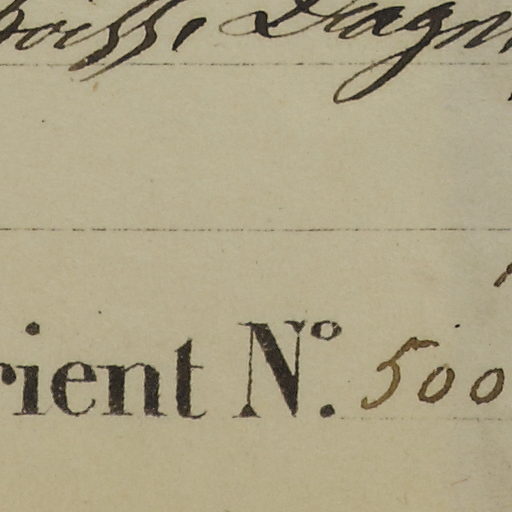 Boiss. Diagn
rient Nº. 500